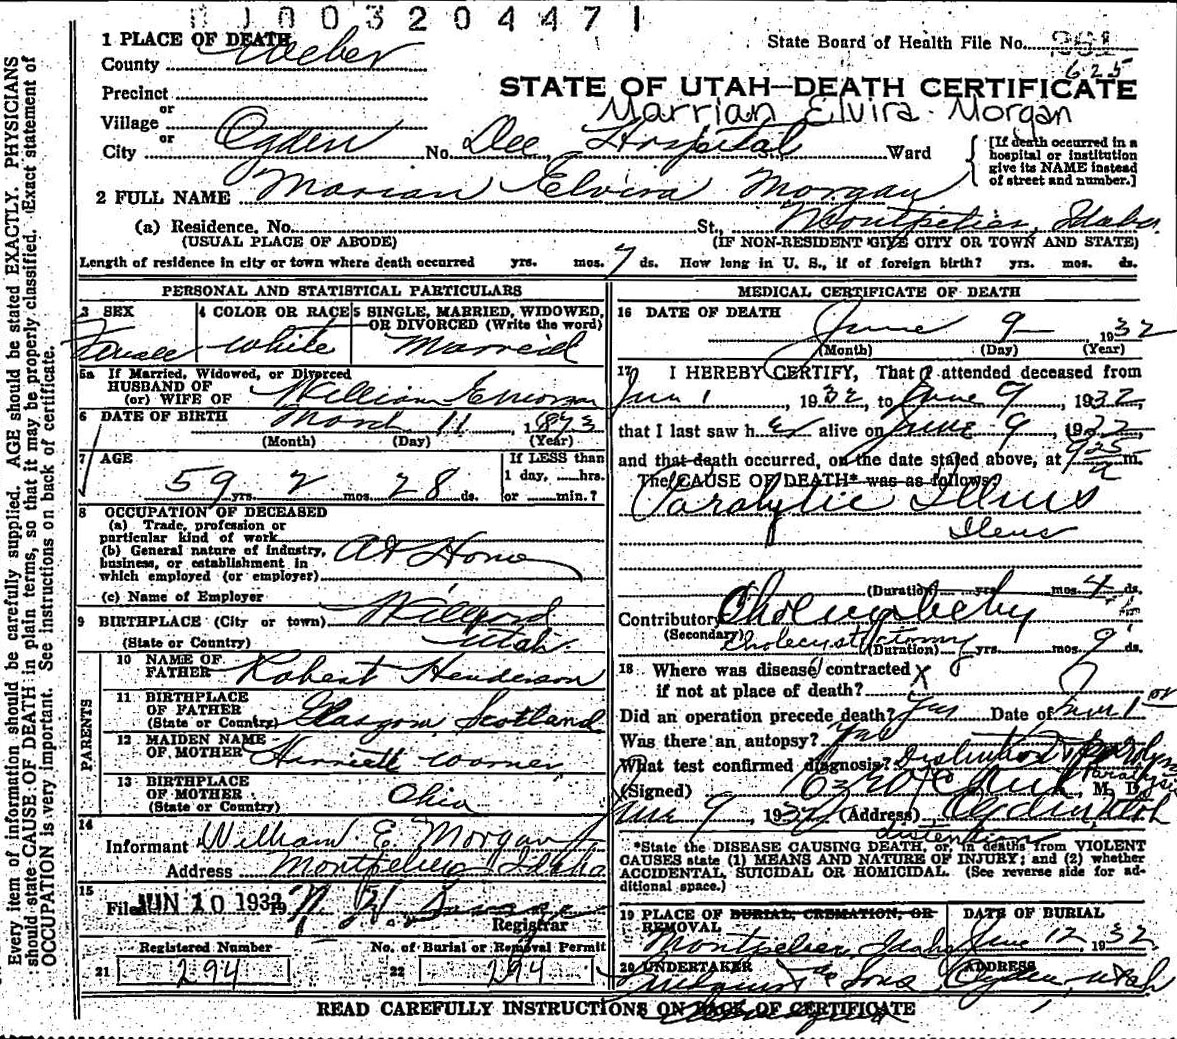 0 1 0 0 3 2 0 4 4 7 1
1 PLACE OF DEATH
County Weber
State Board of Health File No. 361
625
STATE OF UTAH—DEATH CERTIFICATE
Precinct
or
Marrian Elvira Morgan
Village
or
City Ogden No. Dee Hospital S., Ward
[If death occurred in a hospital or institution give its NAME instead of street and number.]
2 FULL NAME Marian Elvira Morgan
(a) Residence, No. St., Montpelier, Idaho
(USUAL PLACE OF ABODE) (IF NON-RESIDENT GIVE CITY OR TOWN AND STATE)
Length of residence in city or town where death occurred yrs. mos. 7 ds. How long in U. S., if of foreign birth? yrs. mos. ds.
PERSONAL AND STATISTICAL PARTICULARS
3 SEX
Female
4 COLOR OR RACE
White
5 SINGLE, MARRIED, WIDOWED, OR DIVORCED (Write the word)
Marreid
5a If Married, Widowed, or Divorced
HUSBAND OF
(or) WIFE OF William E Morgan
6 DATE OF BIRTH March 11, 1873
(Month) (Day) (Year)
7 AGE
59 yrs. 2 mos. 28 ds.
If LESS than
1 day, hrs.
or min.?
8 OCCUPATION OF DECEASED
(a) Trade, profession or
particular kind of work
(b) General nature of industry,
business, or establishment in
which employed (or employer)
At Home
(c) Name of Employer
9 BIRTHPLACE (City or town) Willard
(State or Country) Utah.
PARENTS
10 NAME OF
FATHER Robert Henderson
11 BIRTHPLACE
OF FATHER
(State or Country) Glasgow, Scotland
12 MAIDEN NAME
OF MOTHER Harriett Worner
13 BIRTHPLACE
OF MOTHER
(State or Country) Ohio
14
Informant William E. Morgan
Address Montpelier Idaho
15
Filed JUN 10 1932
Registrar
Registered Number
21 294
No. of Burial or Removal Permit
22 294
MEDICAL CERTIFICATE OF DEATH
16 DATE OF DEATH
June 9 1932
(Month) (Day) (Year)
17 I HEREBY CERTIFY, That I attended deceased from
Jun 1, 1932, to June 9, 1932,
that I last saw her alive on June 9, 1932,
and that death occurred, on the date stated above, at 925 m.
The CAUSE OF DEATH* was as follows:
Paralytic Illius
Ileus
(Duration) yrs. mos. 4 ds.
Contributory
(Secondary) Cholecystectomy
(Duration) yrs. mos. 9 ds.
18 Where was disease contracted
if not at place of death? X
Did an operation precede death? Yes Date of Jun 1
Was there an autopsy? Yes
What test confirmed diagnosis? Distention
(Signed) M. D.
June 9, 1932 (Address) Ogden Utah
distention
*State the DISEASE CAUSING DEATH, or, in deaths from VIOLENT
CAUSES state (1) MEANS AND NATURE OF INJURY; and (2) whether
ACCIDENTAL, SUICIDAL OR HOMICIDAL. (See reverse side for ad-
ditional space.)
19 PLACE OF BURIAL, CREMATION, OR
REMOVAL
Montpelier, Idaho
DATE OF BURIAL
June 12, 1932
20 UNDERTAKER
& Sons
ADDRESS
Ogden, Utah
READ CAREFULLY INSTRUCTIONS ON BACK OF CERTIFICATE
Every item of information should be carefully supplied. AGE should be stated EXACTLY. PHYSICIANS
should state CAUSE OF DEATH in plain terms, so that it may be properly classified. Exact statement of
OCCUPATION is very important. See instructions on back of certificate.